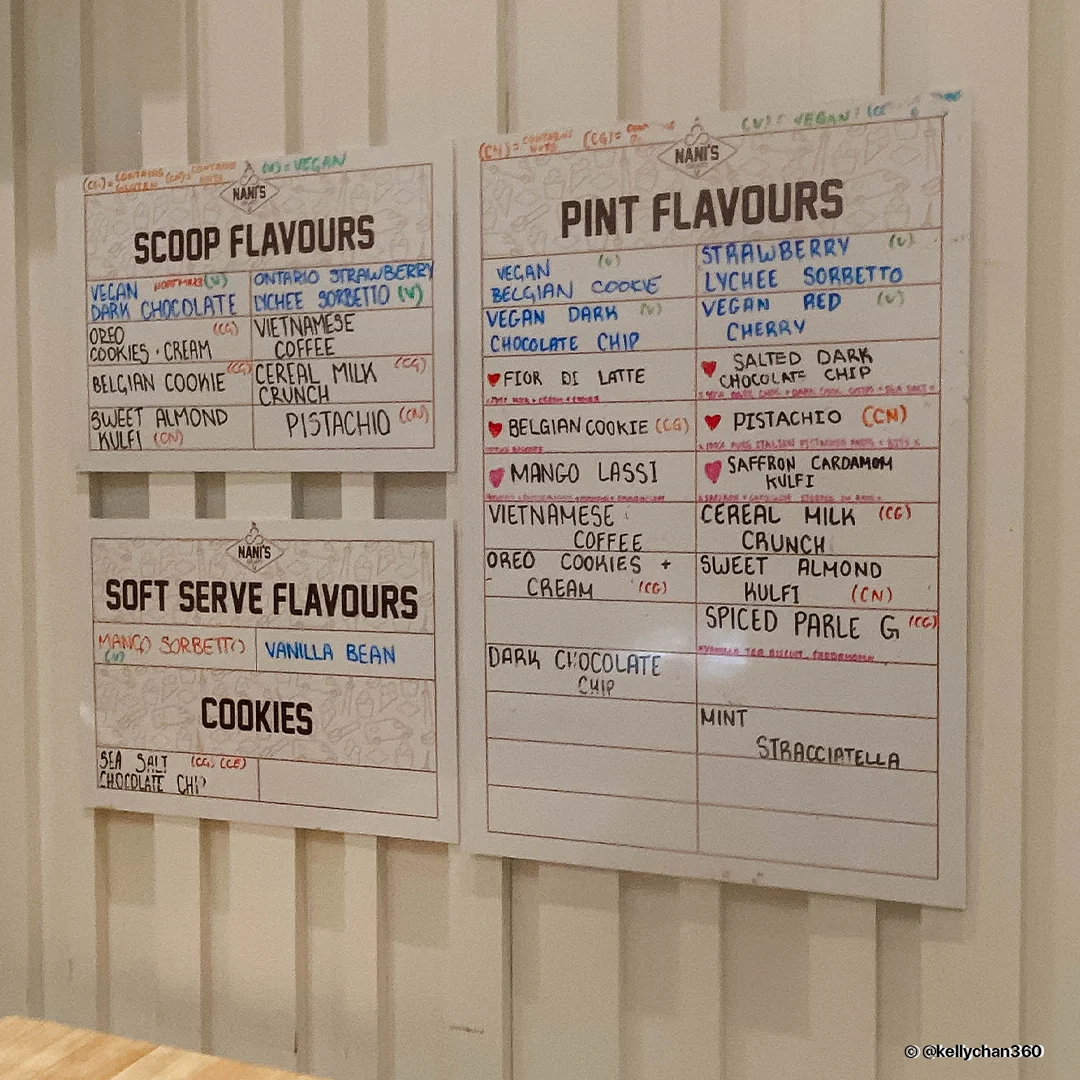 (CG)= CONTAINS GLUTEN (CN)= CONTAINS (V)= VEGAN
NANI'S
SCOOP FLAVOURS
VEGAN (V)
DARK CHOCOLATE
ONTARIO STRAWBERRY
LYCHEE SORBETTO (V)
OREO (CG)
COOKIES + CREAM
VIETNAMESE
COFFEE
BELGIAN COOKIE (CG)
CEREAL MILK (CG)
CRUNCH
SWEET ALMOND
KULFI (CN)
PISTACHIO (CN)
NANI'S
SOFT SERVE FLAVOURS
MANGO SORBETTO
(V)
VANILLA BEAN
COOKIES
SEA SALT (CG) (CE)
CHOCOLATE CHIP
(CN)= CONTAINS NUTS (CG)= (V)= VEGAN
NANI'S
PINT FLAVOURS
VEGAN (V)
BELGIAN COOKIE
STRAWBERRY (V)
LYCHEE SORBETTO
VEGAN DARK (V)
CHOCOLATE CHIP
VEGAN RED (V)
CHERRY
FIOR DI LATTE
SALTED DARK
CHOCOLATE CHIP
BELGIAN COOKIE (CG)
PISTACHIO (CN)
MANGO LASSI
SAFFRON CARDAMOM
KULFI
VIETNAMESE
COFFEE
CEREAL MILK (CG)
CRUNCH
OREO COOKIES +
CREAM (CG)
SWEET ALMOND
KULFI (CN)
SPICED PARLE G (CG)
DARK CHOCOLATE
CHIP
MINT
STRACCIATELLA
© @kellychan360